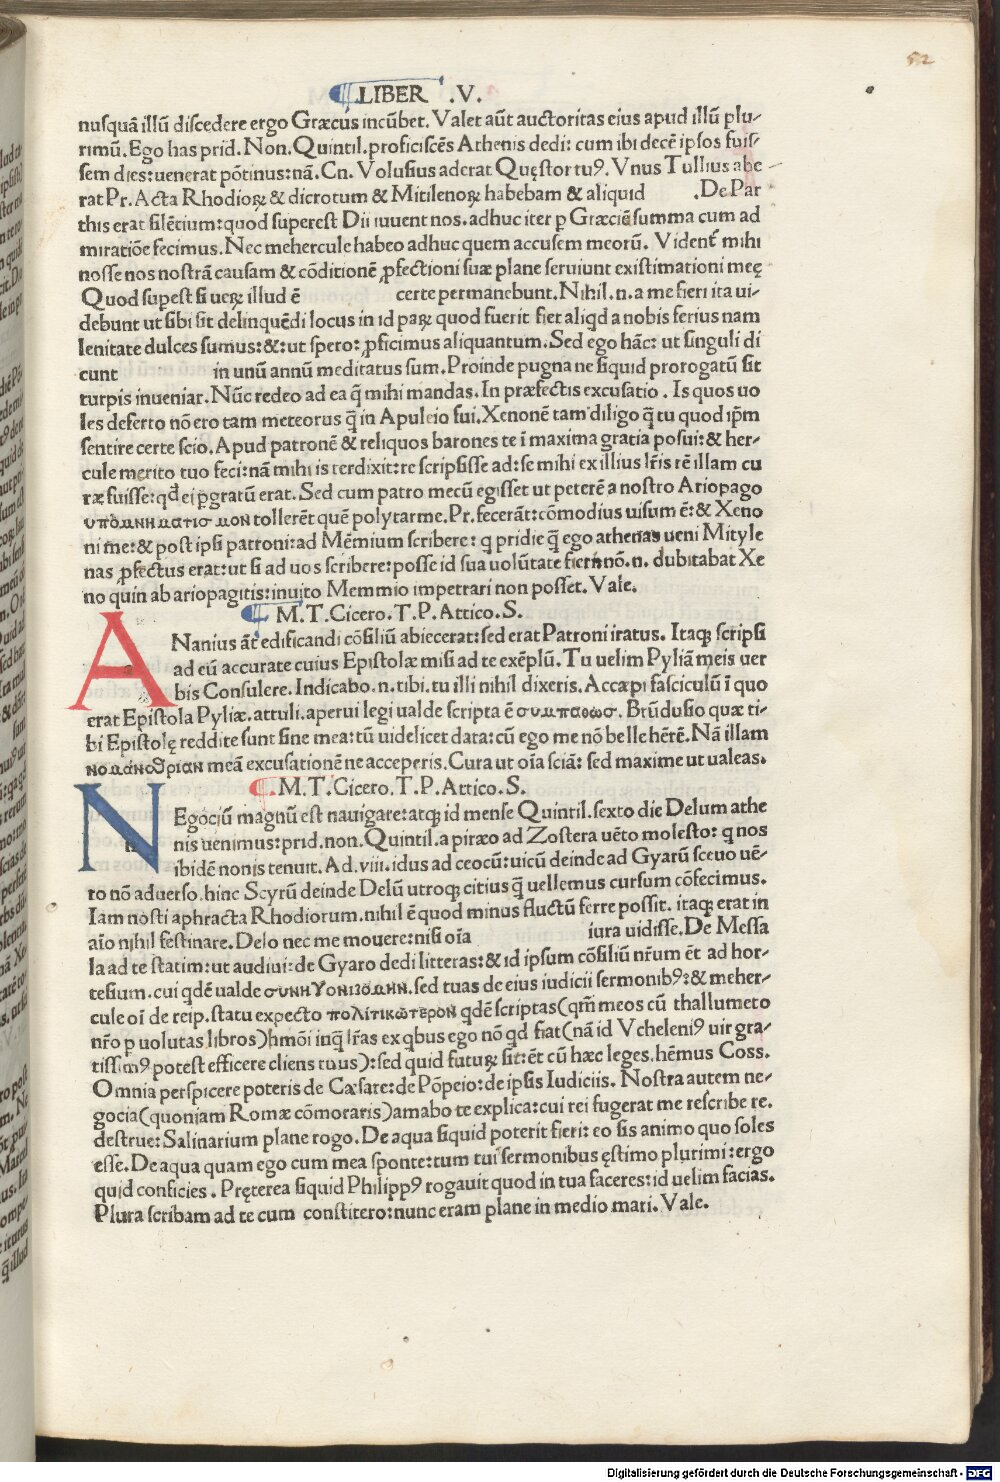 52
LIBER .V.
nusquā illū discedere ergo Græcus incūbet. Valet aūt auctoritas eius apud illū plu-
rimū. Ego has prid. Non. Quintil. proficiscēs Athenis dedi: cum ibi decē ipsos fuis-
sem dies: uenerat pōtinus: nā. Cn. Volusius aderat Quęstor tuꝰ. Vnus Tullius abe
rat Pr. Acta Rhodioꝝ & dicrotum & Mitilenoꝝ habebam & aliquid .De Par
this erat silētium: quod superest Dii iuuent nos. adhuc iter ꝑ Græciā summa cum ad
miratiōe fecimus. Nec mehercule habeo adhuc quem accusem meorū. Vident̄ mihi
nosse nos nostrā causam & cōditionē ꝓfectioni suæ plane seruiunt existimationi meę
Quod supest si ueꝝ illud ē certe permanebunt. Nihil .n. a me fieri ita ui-
debunt ut sibi sit delinquēdi locus in id paꝝ quod fuerit fiet aliqd a nobis serius nam
lenitate dulces sumus: &: ut spero: ꝓficimus aliquantum. Sed ego hāc: ut singuli di
cunt in unū annū meditatus sum. Proinde pugna ne siquid prorogatū sit
turpis inueniar. Nūc redeo ad ea q̄ mihi mandas. In præfectis excusatio . Is quos uo
les deferto nō ero tam meteorus q̄ in Apuleio fui. Xenonē tam diligo q̄ tu quod ip̄m
sentire certe scio. Apud patronē & reliquos barones te ī maxima gratia posui: & her-
cule merito tuo feci: nā mihi is terdixit: re scripsisse ad: se mihi ex illius lr̄is rē illam cu
ræ fuisse: qd̄ ei ꝑgratū erat. Sed cum patro mecū egisset ut peterē a nostro Ariopago
υπομνηματισμον tollerēt quē polytarme. Pr. fecerāt: cōmodius uisum ē: & Xeno
ni me: & post ipsi patroni: ad Mēmium scribere: q pridie q̄ ego athenas ueni Mityle
nas ꝓfectus erat: ut si ad uos scribere: posse id sua uolūtate fieri nō .n. dubitabat Xe
no quin ab ariopagitis: inuito Memmio impetrari non posset. Vale.
M. T. Cicero. T. P. Attico. S.
A Nanius āt edificandi cōsiliū abiecerat: sed erat Patroni iratus. Itaqꝫ scripsi
ad eū accurate cuius Epistolæ misi ad te exēplū. Tu uelim Pyliā meis uer
bis Consulere. Indicabo .n. tibi. tu illi nihil dixeris. Accæpi fasciculū ī quo
erat Epistola Pyliæ. attuli. aperui legi ualde scripta ē συμπαθωσ. Brūdusio quæ ti-
bi Epistolę reddite sunt sine mea: tū uidelicet data: cū ego me nō belle hērē. Nā illam
νομανοδριαν meā excusationē ne acceperis. Cura ut oīa sciā: sed maxime ut ualeas.
M. T. Cicero. T. P. Attico. S.
N Egociū magnū est nauigare: atqꝫ id mense Quintil. sexto die Delum athe
nis uenimus: prid. non. Quintil. a piræo ad Zostera uēto molesto: q nos
ibidē nonis tenuit. Ad .viii. idus ad ceocū: uicū deinde ad Gyarū sceuo uē-
ro nō aduerso. hinc Scyrū deinde Delū utroqꝫ citius q̄ uellemus cursum cōfecimus.
Iam nosti aphracta Rhodiorum. nihil ē quod minus fluctū ferre possit. itaqꝫ erat in
aīo nihil festinare. Delo nec me mouere: nisi oīa iura uidisse. De Messa
la ad te statim: ut audiui: de Gyaro dedi litteras: & id ipsum cōsiliū nr̄um ēt ad hor-
tesium. cui qdē ualde συνηγονιζομην. sed tuas de eius iudicii sermonibꝰ: & meher-
cule oī de reip. statu expecto πολιτικωτερον qdē scriptas (qm̄ meos cū thallumeto
nr̄o ꝑ uolutas libros) hmōi inq̄ lr̄as ex qbus ego nō qd fiat (nā id Vcheleniꝰ uir gra-
tissimꝰ potest efficere cliens tuus): sed quid futuꝝ sit: ēt cū hæc leges. hēmus Coss.
Omnia perspicere poteris de Cæsare: de Pōpeio: de ipsis Iudiciis. Nostra autem ne-
gocia (quoniam Romæ cōmoraris) amabo te explica: cui rei fugerat me rescribe re.
destrue: Salinarium plane rogo. De aqua siquid poterit fieri: eo sis animo quo soles
esse. De aqua quam ego cum mea sponte: tum tui sermonibus ęstimo plurimi: ergo
quid conficies . Pręterea siquid Philippꝰ rogauit quod in tua faceres: id uelim facias.
Plura scribam ad te cum constitero: nunc eram plane in medio mari. Vale.
Digitalisierung gefördert durch die Deutsche Forschungsgemeinschaft - DFG